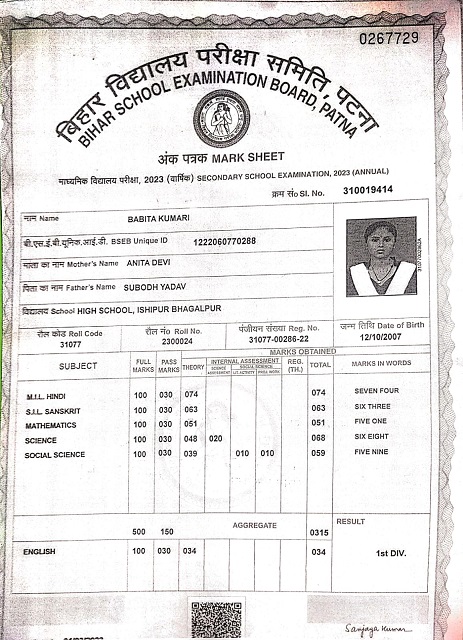 0267729
बिहार विद्यालय परीक्षा समिति, पटना
BIHAR SCHOOL EXAMINATION BOARD, PATNA
अंक पत्रक MARK SHEET
माध्यमिक विद्यालय परीक्षा, 2023 (वार्षिक) SECONDARY SCHOOL EXAMINATION, 2023 (ANNUAL)
क्रम सं० Sl. No. 310019414
नाम Name BABITA KUMARI
बी.एस.ई.बी.यूनिक.आई.डी. BSEB Unique ID 1222060770288
माता का नाम Mother's Name ANITA DEVI
पिता का नाम Father's Name SUBODH YADAV
विद्यालय School HIGH SCHOOL, ISHIPUR BHAGALPUR
रौल कोड Roll Code रौल नं० Roll No. पंजीयन संख्या Reg. No. जन्म तिथि Date of Birth
31077 2300024 31077-00286-22 12/10/2007
MARKS OBTAINED
SUBJECT FULL MARKS PASS MARKS THEORY INTERNAL ASSESSMENT SCIENCE ASSESSMENT SOCIAL SCIENCE LIT. ACTIVITY PROJ. WORK REG. (TH.) TOTAL MARKS IN WORDS
M.I.L. HINDI 100 030 074 074 SEVEN FOUR
S.I.L. SANSKRIT 100 030 063 063 SIX THREE
MATHEMATICS 100 030 051 051 FIVE ONE
SCIENCE 100 030 048 020 068 SIX EIGHT
SOCIAL SCIENCE 100 030 039 010 010 059 FIVE NINE
500 150 AGGREGATE 0315 RESULT
ENGLISH 100 030 034 034 1st DIV.
Sanjaya Kumar